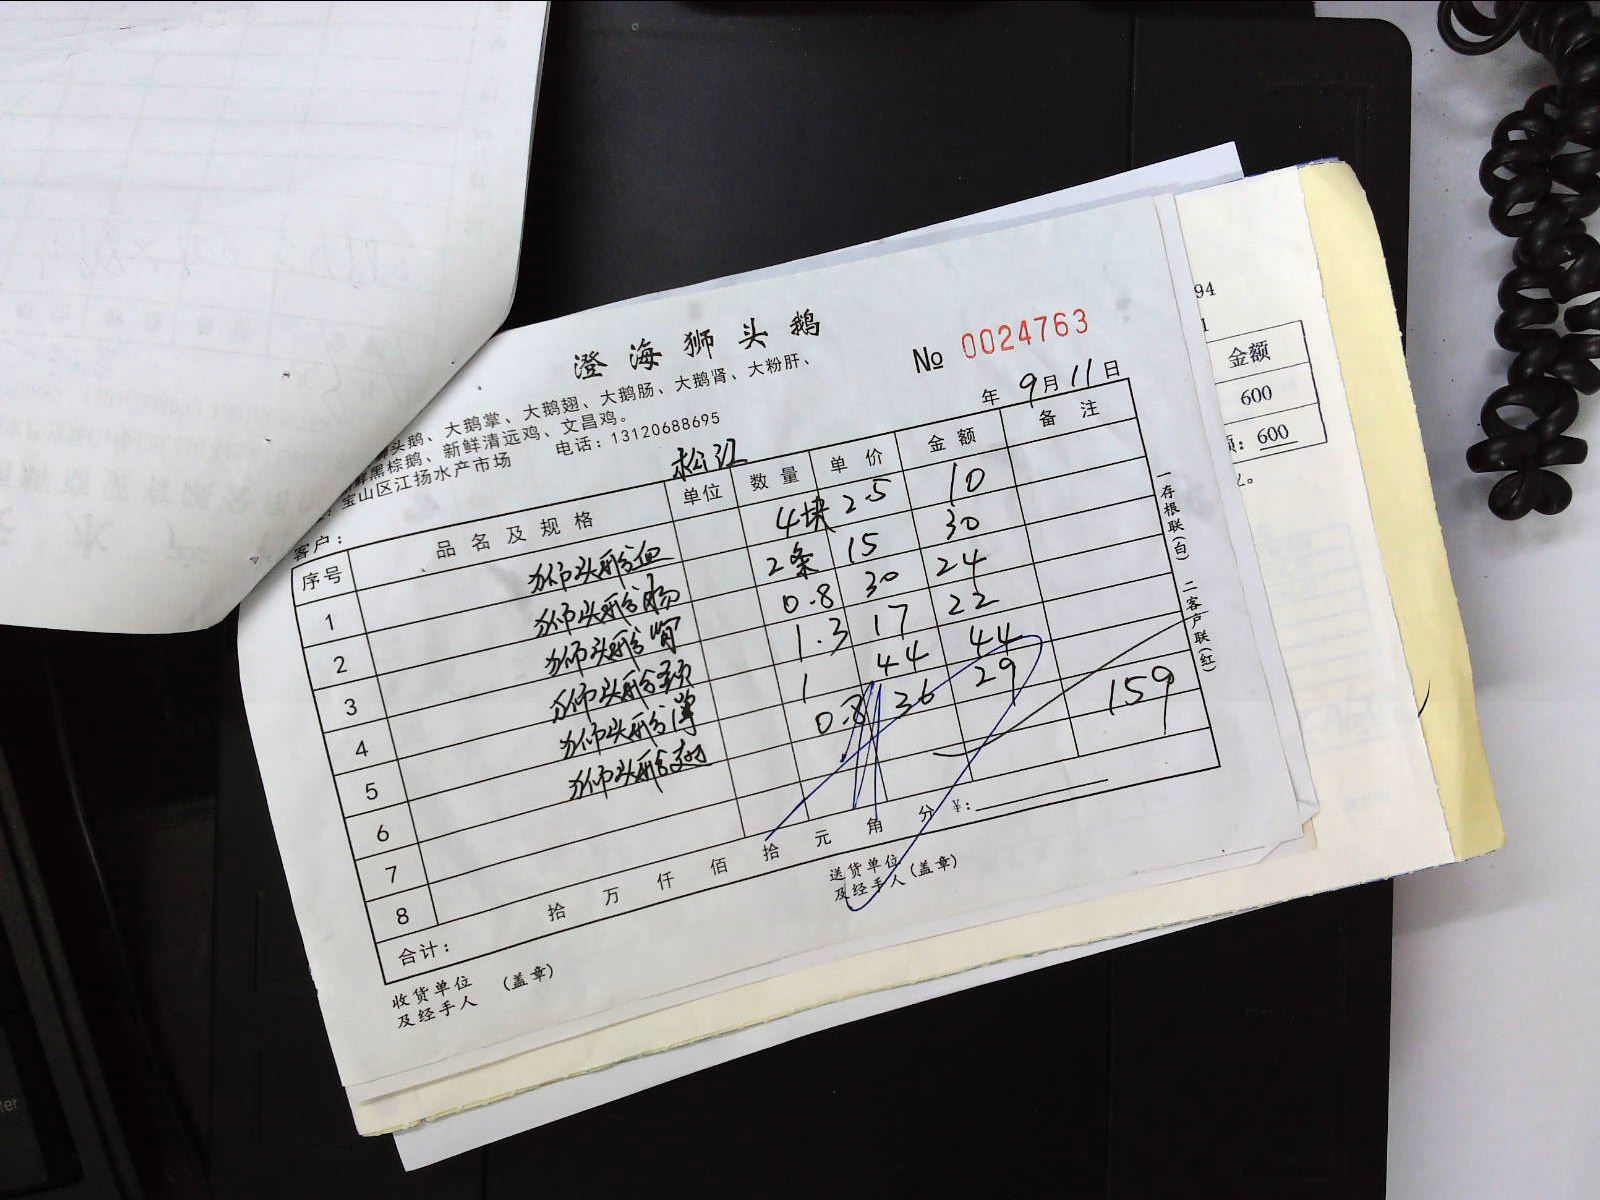 澄海狮头鹅
№ 0024763
头鹅、大鹅掌、大鹅翅、大鹅肠、大鹅肾、大粉肝、
鲜黑棕鹅、新鲜清远鸡、文昌鸡。
宝山区江扬水产市场 电话：13120688695
年 9月11日
客户： 松江
序号 品名及规格 单位 数量 单价 金额 备注
1 狮头鹅血 4块 2.5 10
2 狮头鹅肠 2条 15 30
3 狮头鹅肾 0.8 30 24
4 狮头鹅头 1.3 17 22
5 狮头鹅 1 44 44
6 狮头鹅翅 0.8 36 29
7 159
8
合计： 拾 万 仟 佰 拾 元 角 分 ¥：
收货单位
及经手人 (盖章)
送货单位
及经手人(盖章)
一存根联(白) 二客户联(红)
94
1
金额
600
：600